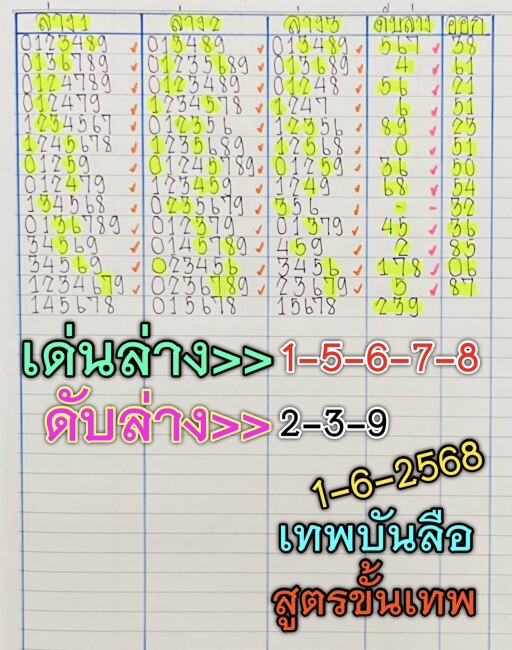 ล่าง1 ล่าง2 ล่าง3 ดับล่าง ออก
0123489 013489 013489 567 58
0136789 01235689 013689 4 61
0124789 0123489 01248 56 21
012479 1234578 1247 6 51
1234567 012356 12356 89 23
1245678 1235689 12568 0 51
01259 01245789 01259 36 50
012479 123459 1249 68 54
134568 0235679 356 - - 32
0136789 012379 01379 45 36
34569 0145789 459 2 85
34569 023456 3456 178 06
1234679 0236789 23679 5 87
145678 015678 15678 239
เด่นล่าง>> 1-5-6-7-8
ดับล่าง>> 2-3-9
1-6-2568
เทพบันลือ
สูตรขั้นเทพ